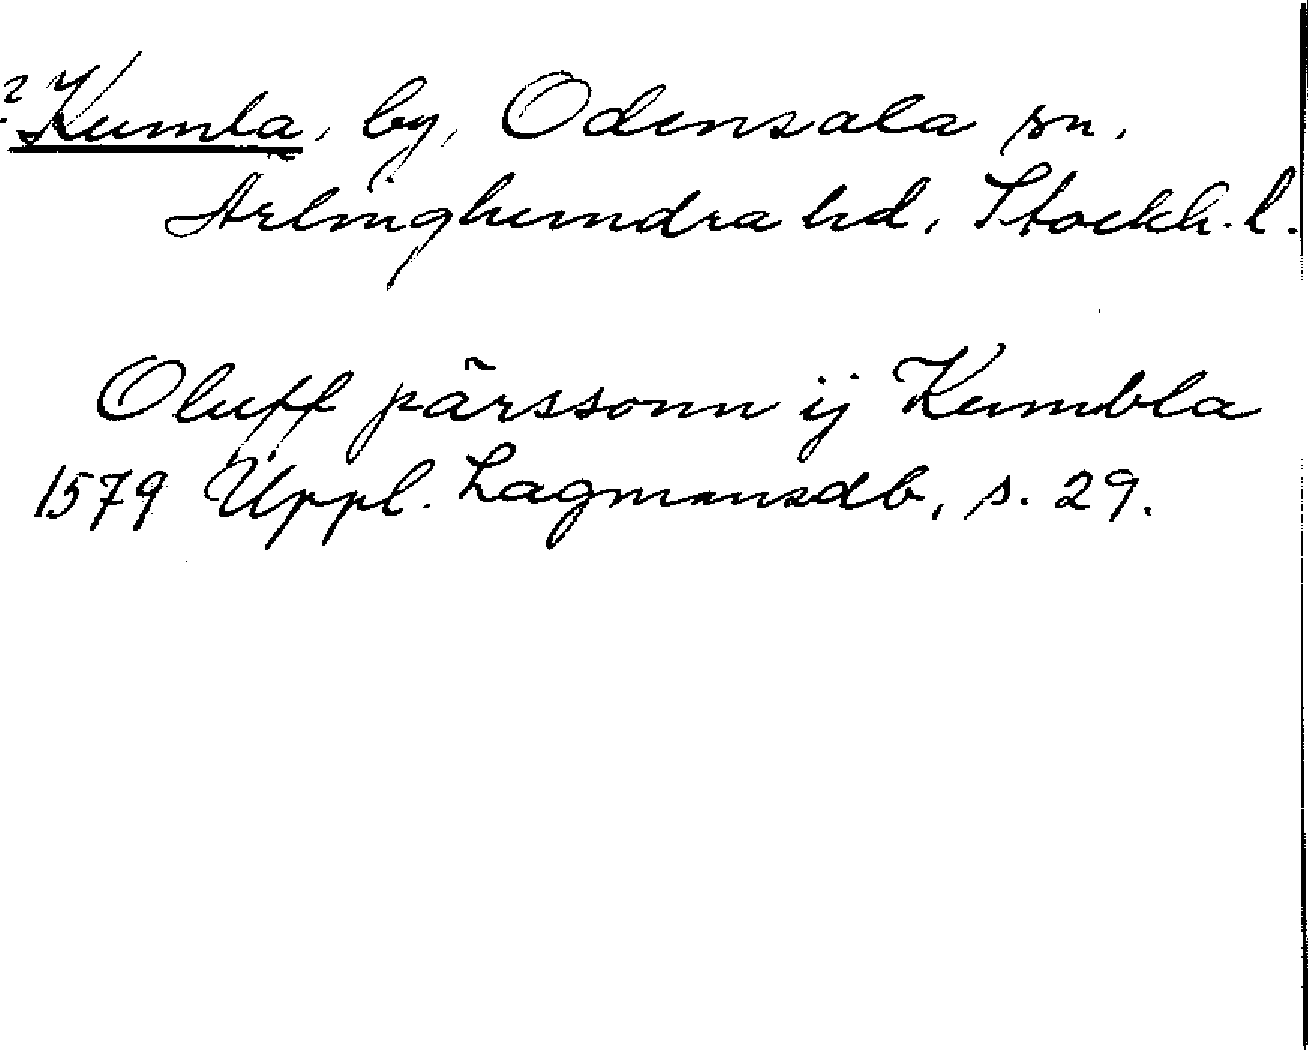 ? Kumla, by, Odensala sn.
Ärlinghundra hd. Stockh. l.
Oluff pärssonn ij Kumbla
1579 Uppl. Lagmansdb, s. 29.